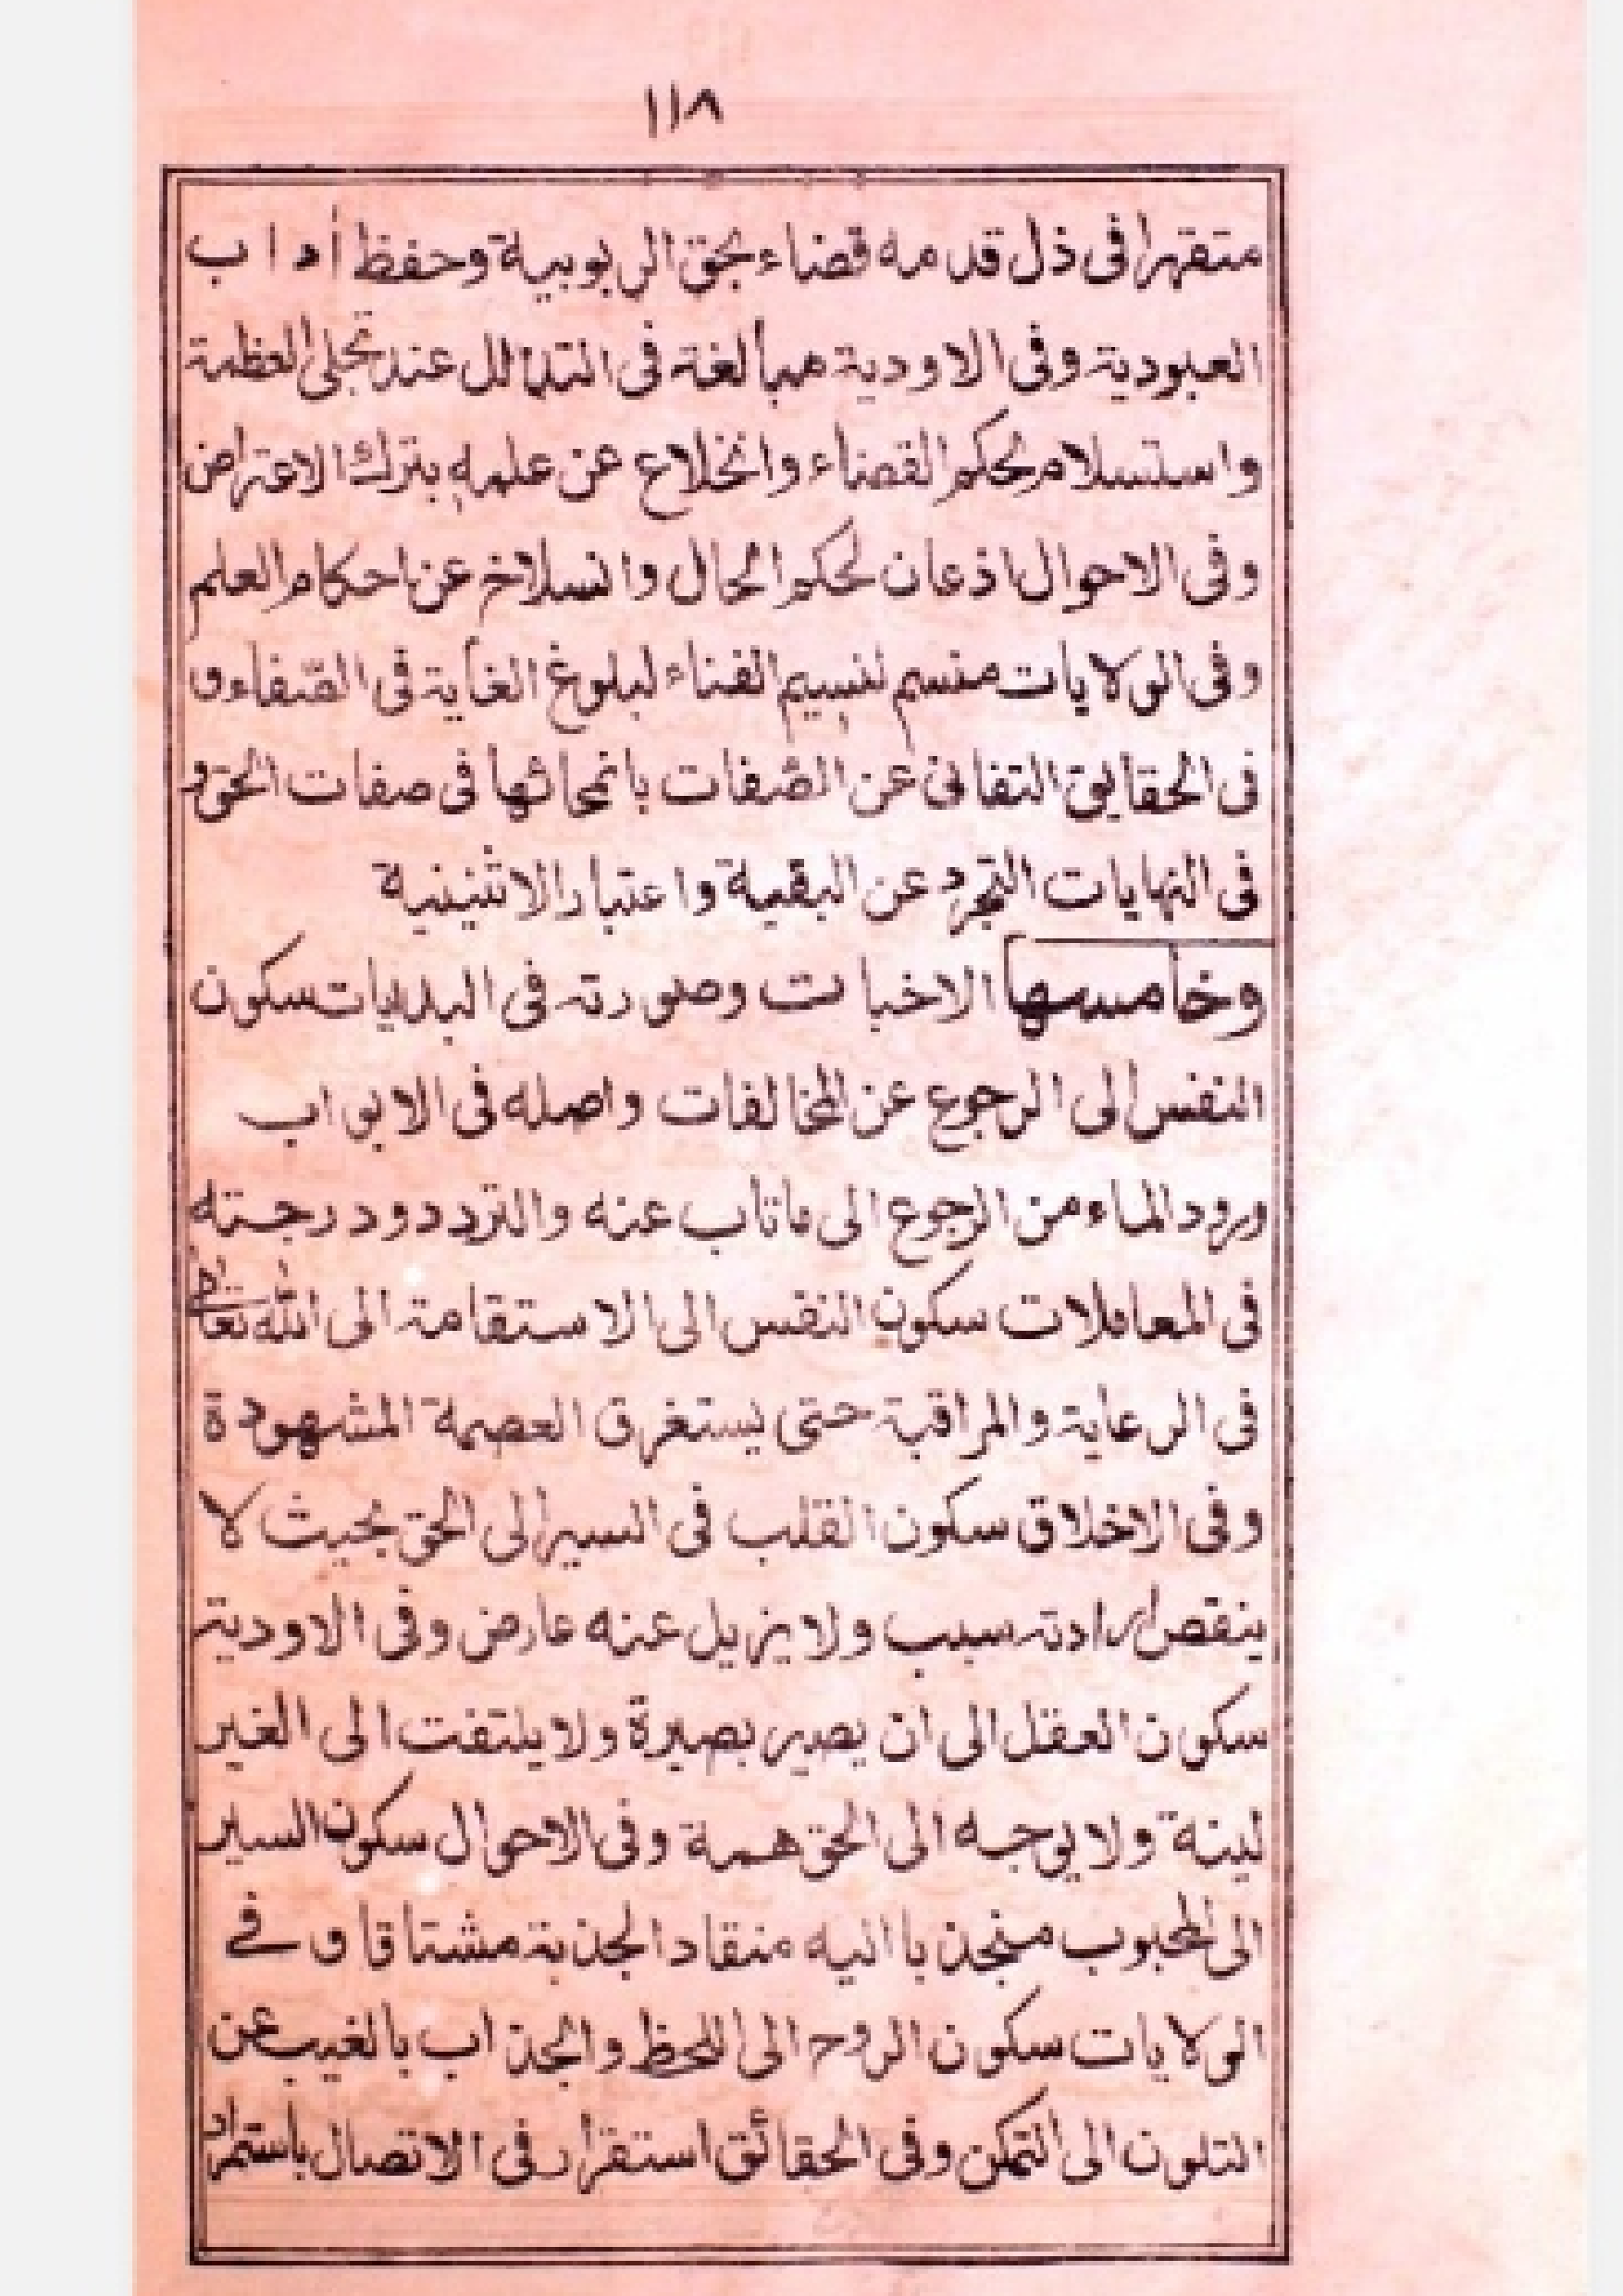 ١١٨
متقهرا فى ذل قدمه قضاء بحق الربوبية وحفظ أداب
العبودية وفى الاودية مبالغة فى التذلل عند تجلى العظمة
واستسلام لحكم القضاء وانخلاع عن علمه بترك الاعتراض
وفى الاحوال اذعان لحكم الحال وانسلاخ عن احكام العلم
وفى الولايات منسم لنسيم الفناء لبلوغ الغاية فى الصّفاء و
فى الحقايق التفانى عن الصّفات بانمحائها فى صفات الحق و
فى النهايات التجرد عن البقية واعتبار الاثنينية
وخامسها الاخبات وصورته فى البدايات سكون
النفس الى الرجوع عن المخالفات واصله فى الابواب
ورود الماء من الرجوع الى ماتاب عنه والتردد ودرجته
فى المعاملات سكون النفس الى الاستقامة الى الله تعالى
فى الرعاية والمراقبة حتى يستغرق العصمة المشهودة
وفى الاخلاق سكون القلب فى السير الى الحق بحيث لا
ينقص ارادته سبب ولا يزيل عنه عارض وفى الاودية
سكون العقل الى ان يصير بصيرة ولا يلتفت الى الغير
لينة ولا يوجه الى الحق همة وفى الاحوال سكون السير
الى المحبوب منجذبا اليه منقادا لجذبته مشتاقا و فے
الولايات سكون الروح الى اللحظ والجذاب بالغيب عن
التلون الى التمكن وفى الحقائق استقرار فى الاتصال باستمرار